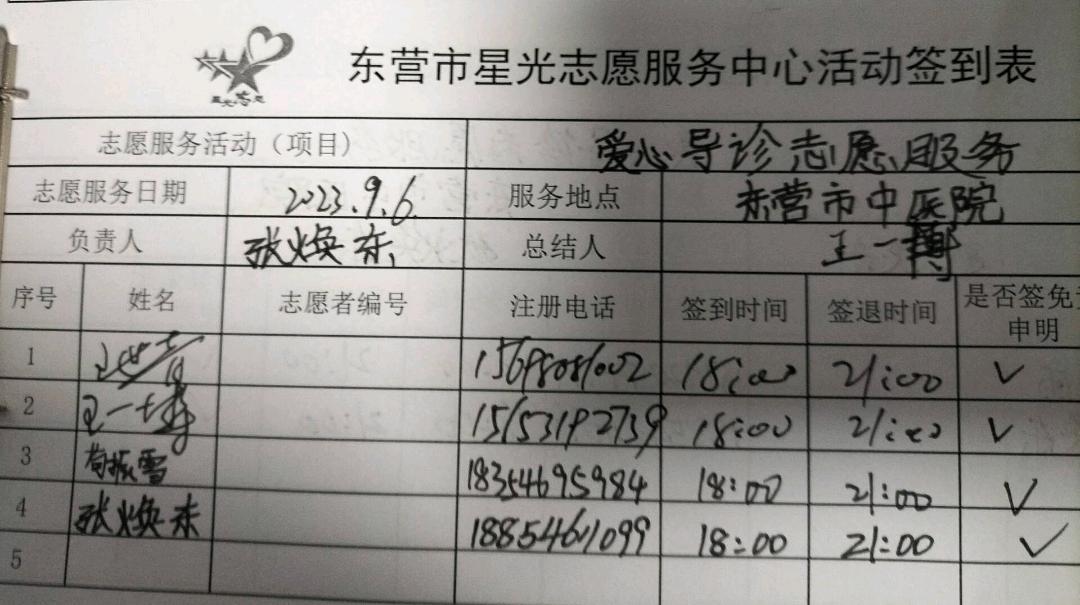 星光志愿
东营市星光志愿服务中心活动签到表
志愿服务活动（项目） 爱心导诊志愿服务
志愿服务日期 2023.9.6. 服务地点 东营市中医院
负责人 张焕东 总结人 王一博
序号 姓名 志愿者编号 注册电话 签到时间 签退时间 是否签免
申明
1 15698081002 18:00 21:00 ✓
2 王一博 15153192739 18:00 21:00 ✓
3 苟振雪 18354695984 18:00 21:00 ✓
4 张焕东 18854611099 18:00 21:00 ✓
5